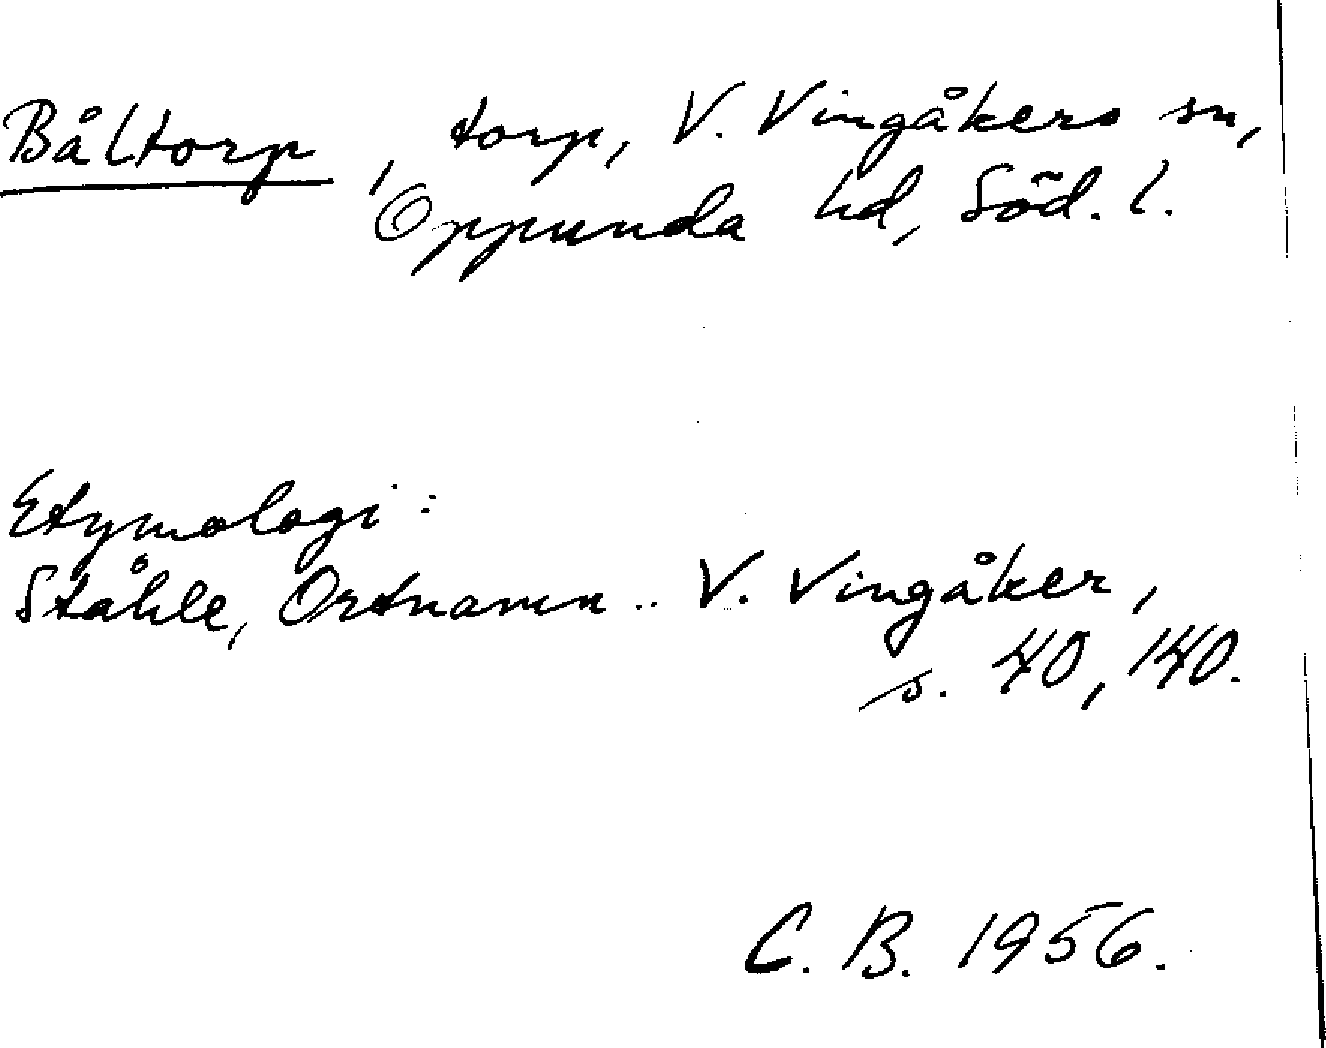 Båltorp, torp, V. Vingåkers sn,
Oppunda hd, Söd. l.
Etymologi:
Ståhle, Ortnamn .. V. Vingåker,
s. 40, 140.
C. B. 1956.